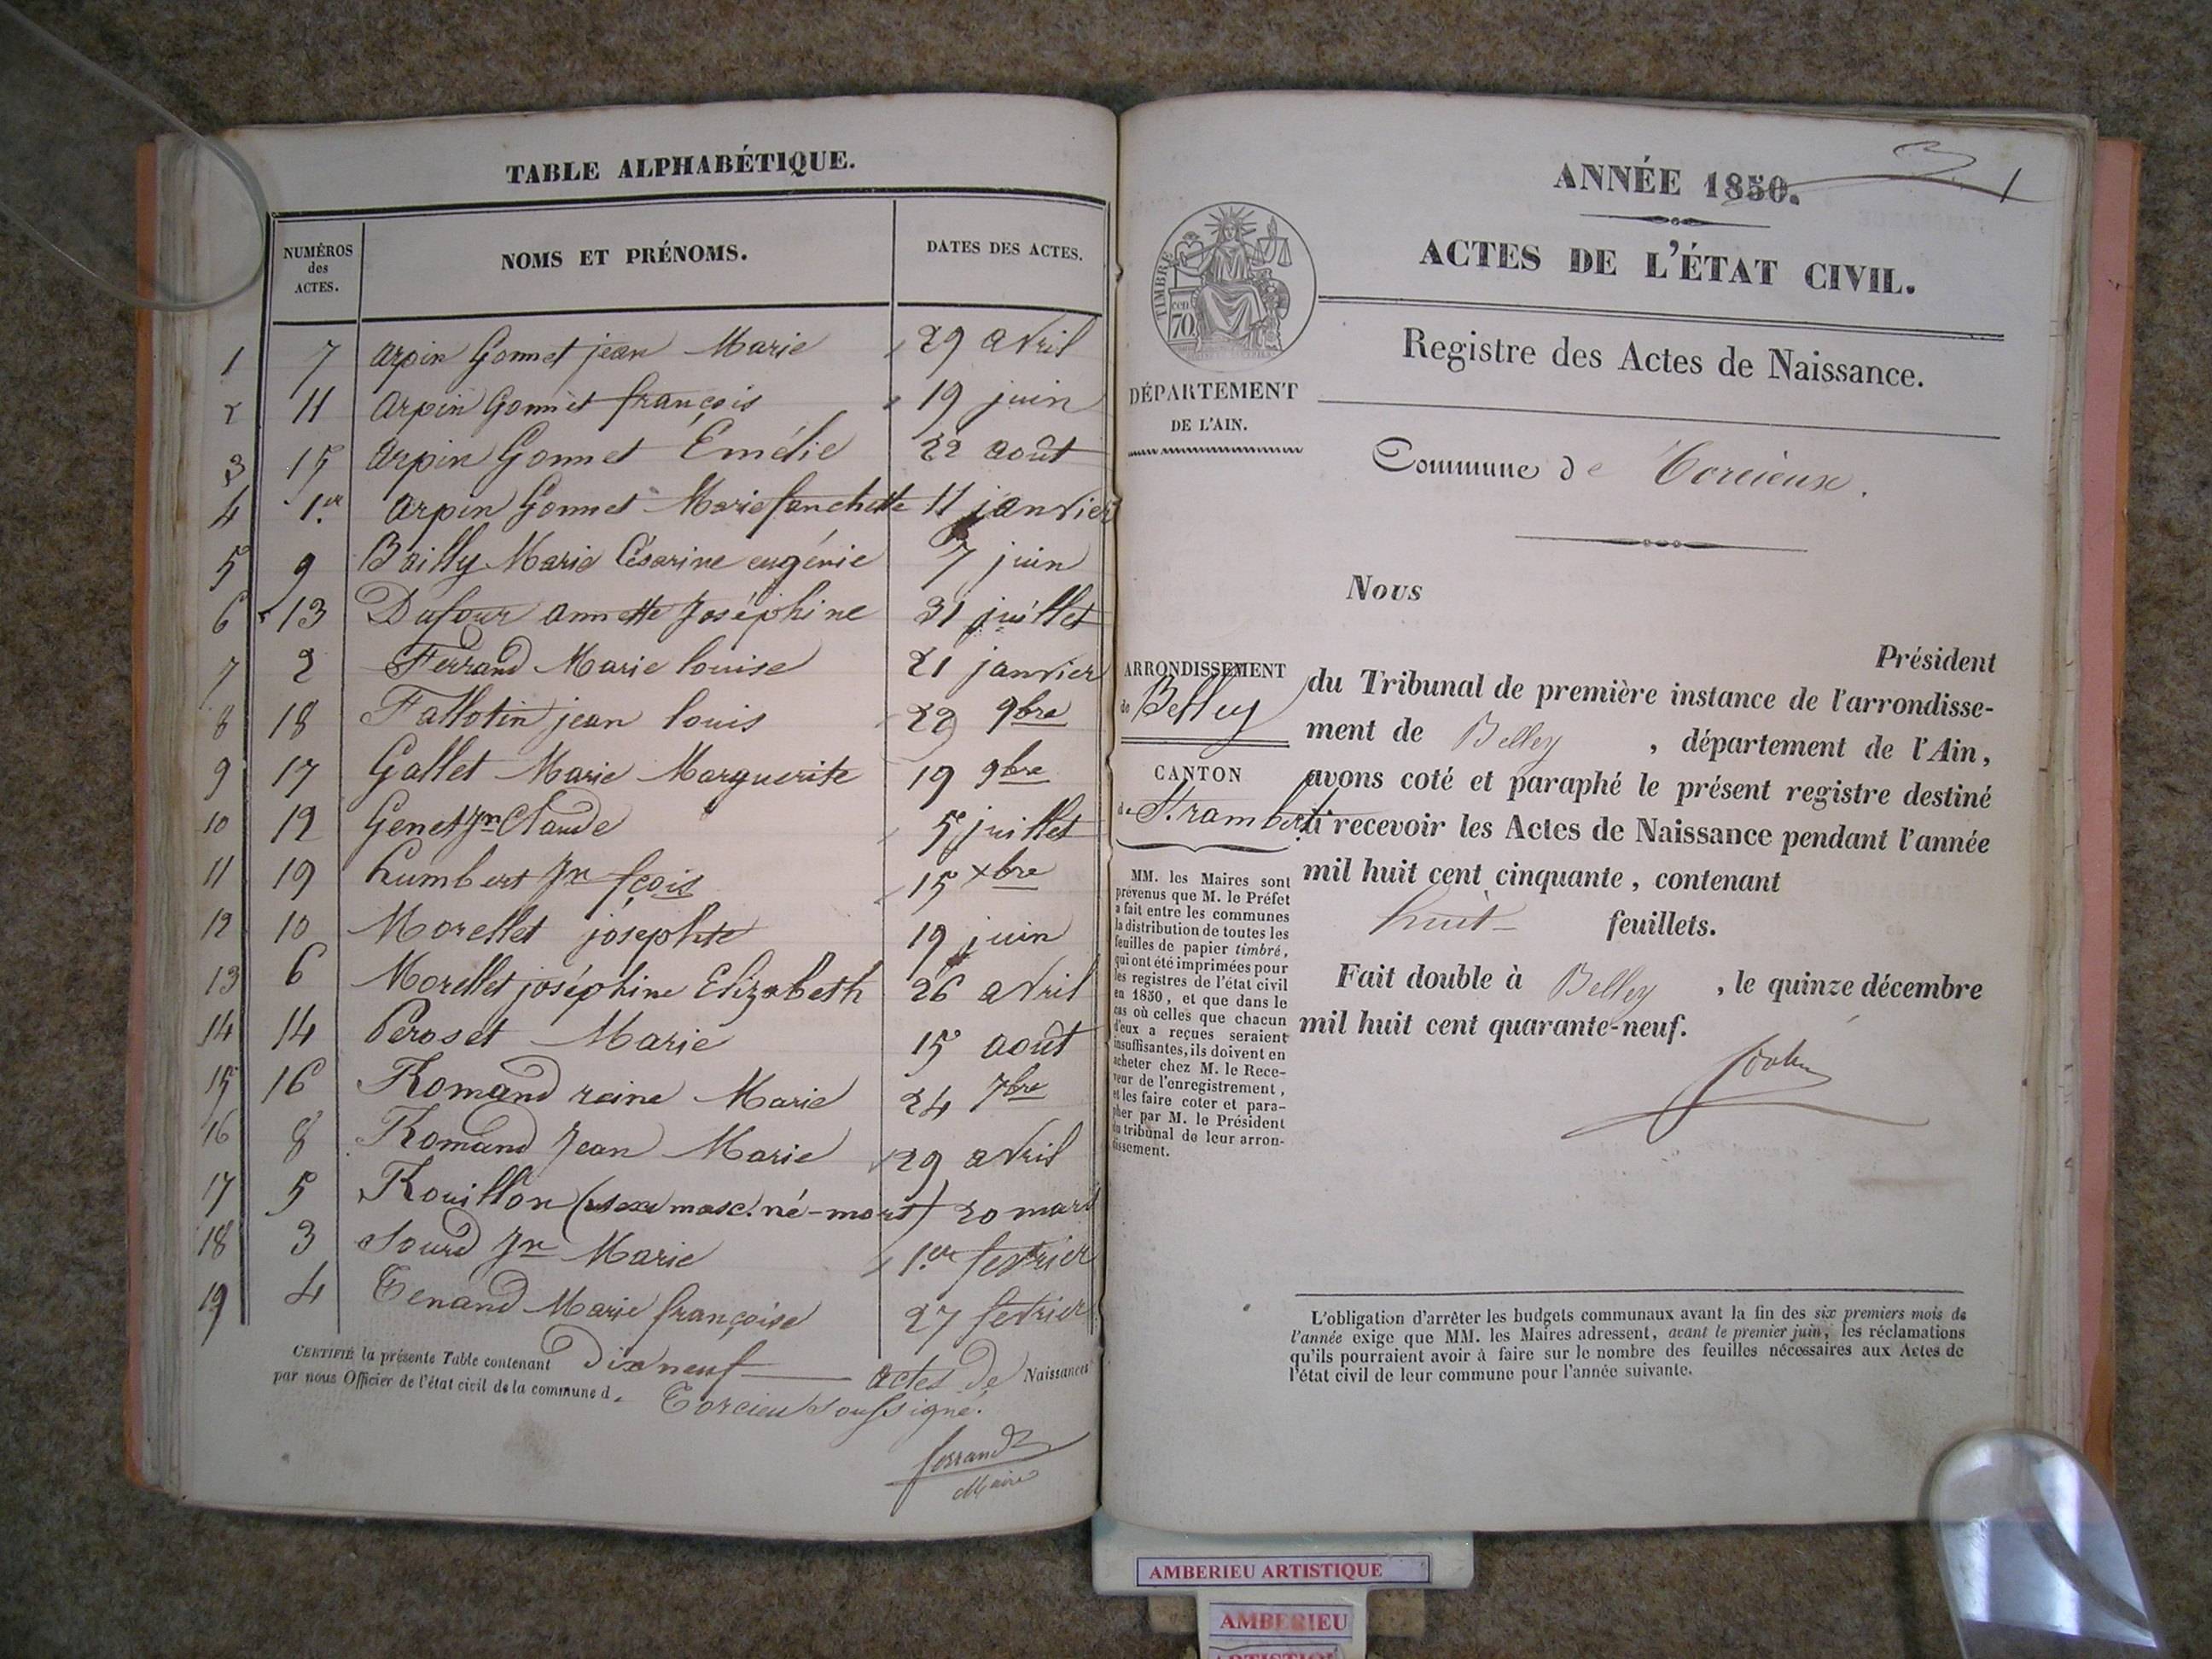 TABLE ALPHABÉTIQUE.
NUMÉROS des ACTES. NOMS ET PRÉNOMS. DATES DES ACTES.
1 7 Arpin Gonnet jean Marie 29 avril
2 11 Arpin Gonnet françois 19 juin
3 15 Arpin Gonnet Emélie 22 août
4 1.er Arpin Gonnet Marie fanchette 11 janvier
5 9 Bailly Marie Césarine eugénie 7 juin
6 13 Dufour annette Joséphine 31 juillet
7 2 Ferrand Marie louise 21 janvier
8 18 Fallotin jean louis 22 9bre
9 17 Gallet Marie Marguerite 19 9bre
10 12 Genet Jn Claude 5 juillet
11 19 humbert Jn fçois 15 xbre
12 10 Morellet josephte 19 juin
13 6 Morellet joséphine Elizabeth 26 avril
14 14 Peroset Marie 15 août
15 16 Romand reine Marie 24 7bre
16 8 Romand Jean Marie 29 avril
17 5 Rouillon (sexe masc. né-mort) 20 mars
18 3 Sourd Jn Marie 1.er fevrier
19 4 Tenand Marie françoise 27 fevrier
CERTIFIÉ la présente Table contenant dix neuf actes de Naissances
par nous Officier de l'état civil de la commune d. Torcieu soussigné.
ferrand
Maire
ANNÉE 1850. 1
ACTES DE L'ÉTAT CIVIL.
TIMBRE
cen
70
Registre des Actes de Naissance.
DÉPARTEMENT
DE L'AIN.
Commune de Torcieux.
Nous
Président
ARRONDISSEMENT
de Belley
du Tribunal de première instance de l'arrondisse-
ment de Belley, département de l'Ain,
CANTON
de St. rambert
avons coté et paraphé le présent registre destiné
à recevoir les Actes de Naissance pendant l'année
mil huit cent cinquante, contenant
huit feuillets.
Fait double à Belley, le quinze décembre
mil huit cent quarante-neuf.
MM. les Maires sont
prévenus que M. le Préfet
a fait entre les communes
la distribution de toutes les
feuilles de papier timbré,
qui ont été imprimées pour
les registres de l'état civil
en 1850, et que dans le
cas où celles que chacun
d'eux a reçues seraient
insuffisantes, ils doivent en
acheter chez M. le Rece-
veur de l'enregistrement,
et les faire coter et para-
pher par M. le Président
du tribunal de leur arron-
dissement.
L'obligation d'arrêter les budgets communaux avant la fin des six premiers mois de
l'année exige que MM. les Maires adressent, avant le premier juin, les réclamations
qu'ils pourraient avoir à faire sur le nombre des feuilles nécessaires aux Actes de
l'état civil de leur commune pour l'année suivante.
AMBERIEU ARTISTIQUE
AMBERIEU
ARTISTIQUE